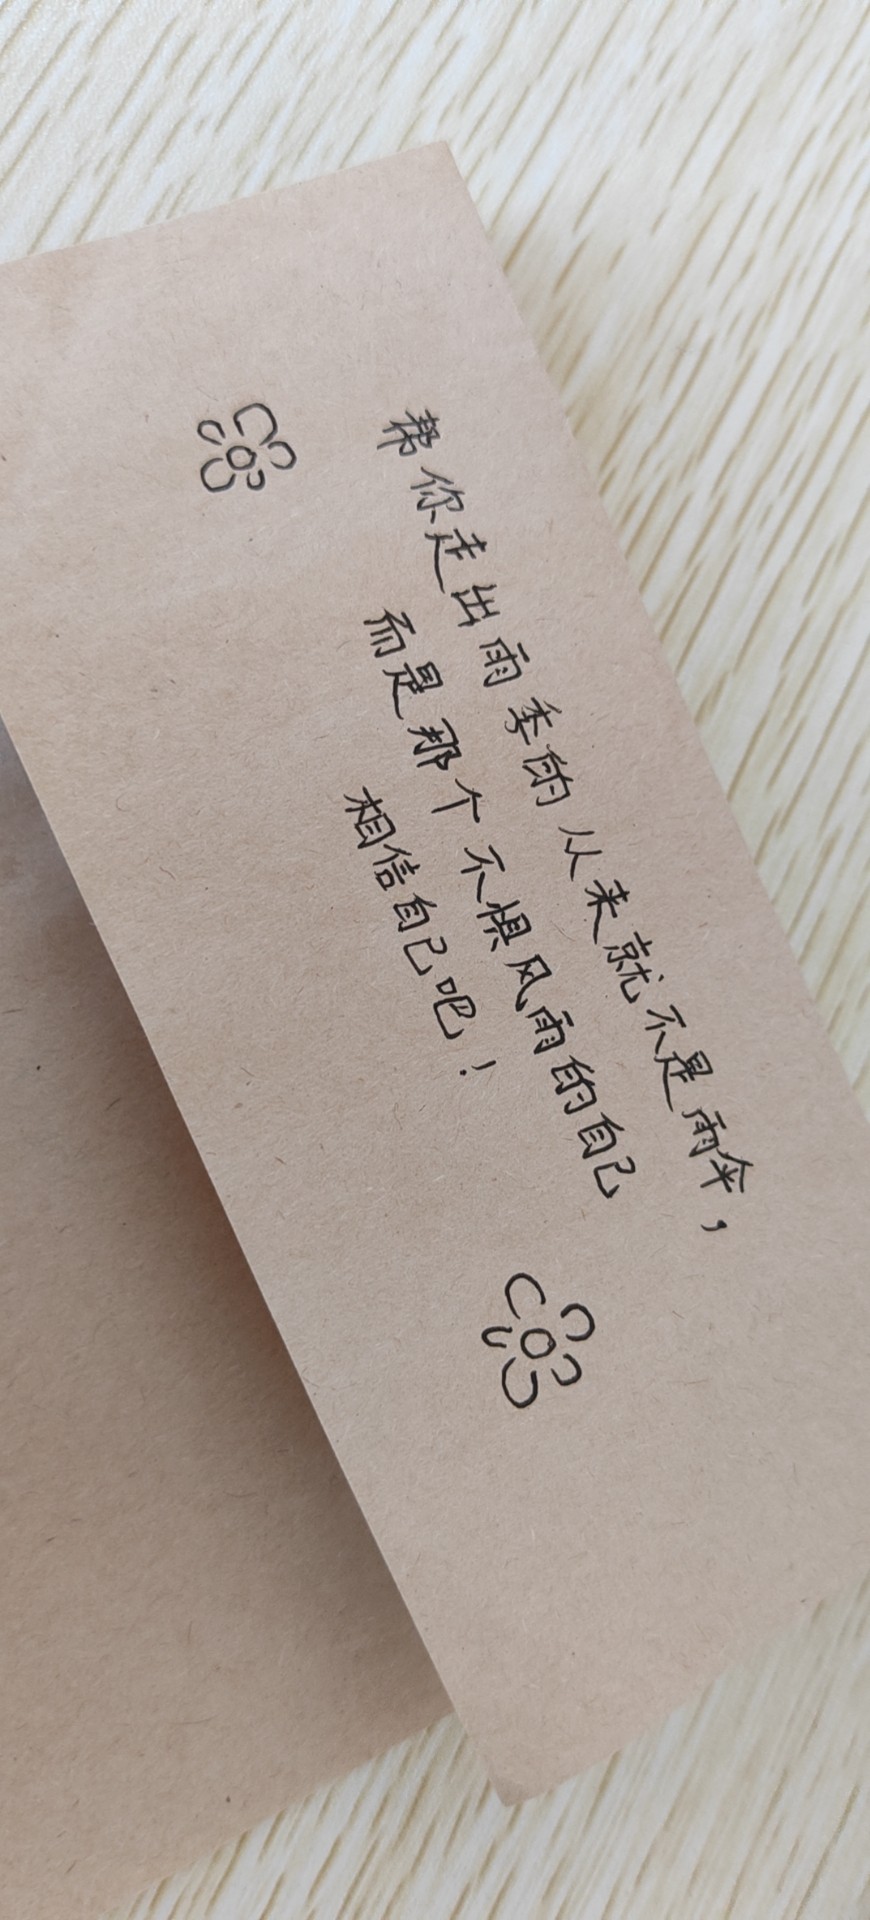 帮你走出雨季的从来就不是雨伞，
而是那个不惧风雨的自己
相信自己吧！